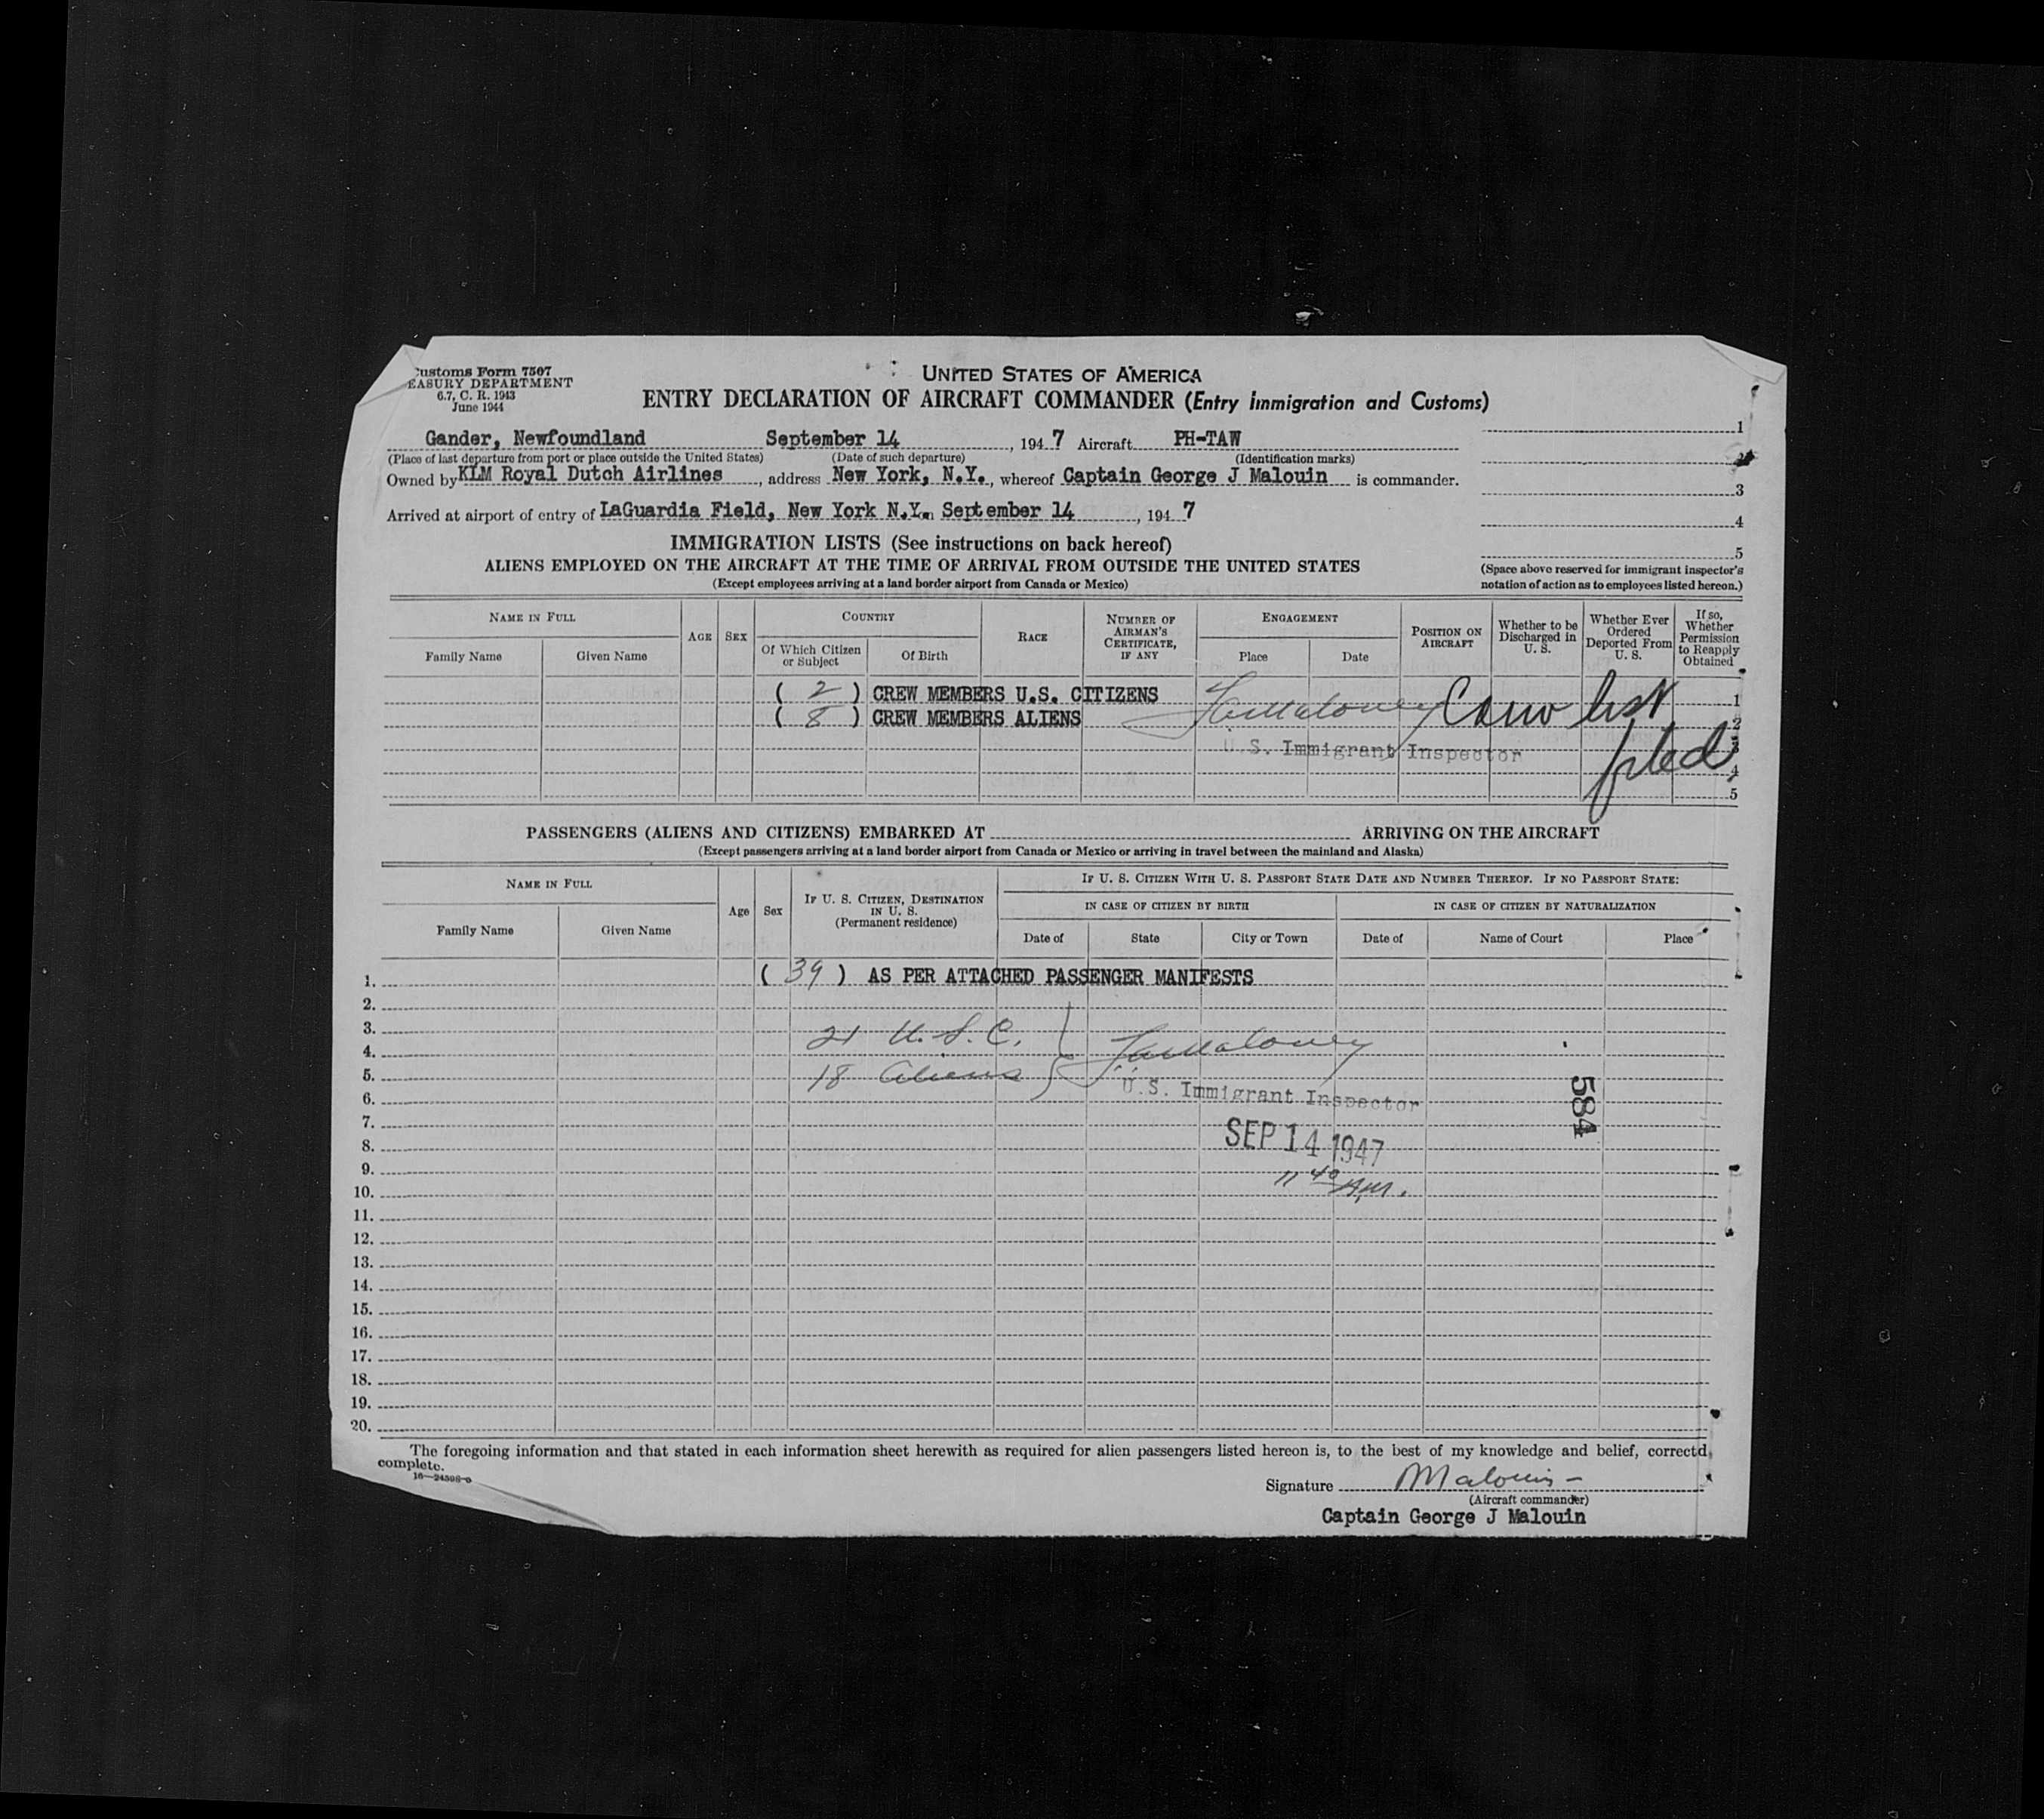 Customs Form 7507
EASURY DEPARTMENT
6.7, C. R. 1943
June 1944
UNITED STATES OF AMERICA
ENTRY DECLARATION OF AIRCRAFT COMMANDER (Entry Immigration and Customs)
Gander, Newfoundland September 14, 1947 Aircraft PH-TAW
(Place of last departure from port or place outside the United States) (Date of such departure) (Identification marks)
Owned by KLM Royal Dutch Airlines, address New York, N.Y., whereof Captain George J Malouin is commander.
Arrived at airport of entry of LaGuardia Field, New York N.Y. September 14, 1947
1
3
4
5
(Space above reserved for immigrant inspector's
notation of action as to employees listed hereon.)
IMMIGRATION LISTS (See instructions on back hereof)
ALIENS EMPLOYED ON THE AIRCRAFT AT THE TIME OF ARRIVAL FROM OUTSIDE THE UNITED STATES
(Except employees arriving at a land border airport from Canada or Mexico)
NAME IN FULL
Family Name Given Name
AGE SEX
COUNTRY
Of Which Citizen or Subject Of Birth
RACE
NUMBER OF AIRMAN'S CERTIFICATE, IF ANY
ENGAGEMENT
Place Date
POSITION ON AIRCRAFT
Whether to be Discharged in U. S.
Whether Ever Ordered Deported From U. S.
If so, Whether Permission to Reapply Obtained
( 2 ) CREW MEMBERS U.S. CITIZENS 1
( 8 ) CREW MEMBERS ALIENS 2
Maloney
list
filed
U.S. Immigrant Inspector 3
4
5
PASSENGERS (ALIENS AND CITIZENS) EMBARKED AT ARRIVING ON THE AIRCRAFT
(Except passengers arriving at a land border airport from Canada or Mexico or arriving in travel between the mainland and Alaska)
NAME IN FULL
Family Name Given Name
Age Sex
IF U. S. CITIZEN, DESTINATION IN U. S.
(Permanent residence)
IF U. S. CITIZEN WITH U. S. PASSPORT STATE DATE AND NUMBER THEREOF. IF NO PASSPORT STATE:
IN CASE OF CITIZEN BY BIRTH IN CASE OF CITIZEN BY NATURALIZATION
Date of State City or Town Date of Name of Court Place
1. ( 39 ) AS PER ATTACHED PASSENGER MANIFESTS
2.
3. 21 U.S.C.
4. Maloney
5. 18 Aliens
6. U.S. Immigrant Inspector
584
7.
8. SEP 14 1947
9.
10. 11 40 A.M.
11.
12.
13.
14.
15.
16.
17.
18.
19.
20.
The foregoing information and that stated in each information sheet herewith as required for alien passengers listed hereon is, to the best of my knowledge and belief, correct d
complete.
16—24598-
Signature Malouin
(Aircraft commander)
Captain George J Malouin